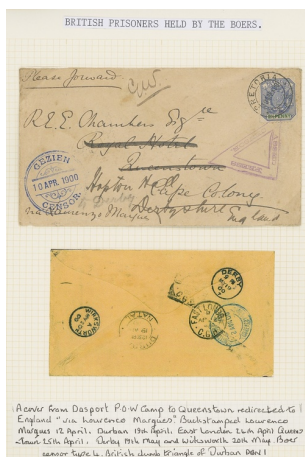 BRITISH PRISONERS HELD BY THE BOERS.
Please forward
PRETORIA
R.E.E. Chambers Esqre
Royal Hotel
Queenstown
GEZIEN
10 APR. 1900
CENSOR.
Hopton Hall Cape Colony
Derbyshire
England
via Lourenzo Marques
DERBY
EAST LONDON
WIRKSWORTH
A cover from Daspoort P.O.W Camp to Queenstown redirected to
England "via Lourenco Marques". Backstamped Lourenco
Marques 12 April. Durban 17th April. East London 24th April Queens
Town 25th April. Derby 19th May and Wirksworth 20th May. Boer
censor type 4. British dumb triangle of Durban DBN 1